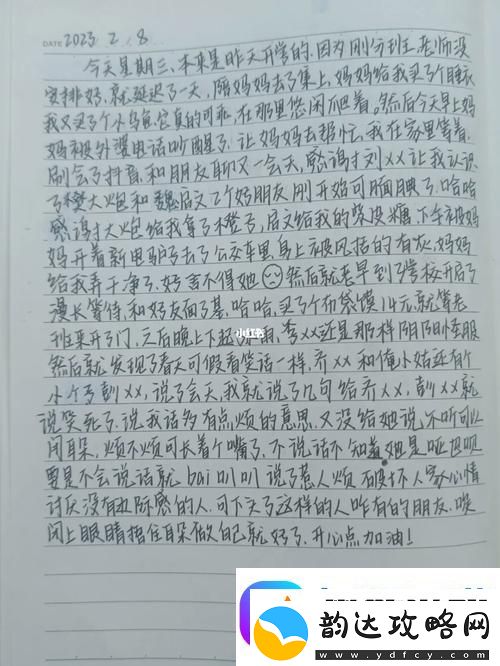 DATE 2023 2 8
今天星期三、本来是昨天开学的、因为刚分班、老师没
安排好、就延迟了一天，陪妈妈去了集上，妈妈给我买了个睡衣
我又买了个小乌龟它真的可乖、在那里悠闲爬着。然后今天早上妈
妈被外婆电话叫醒了、让妈妈去帮忙、我在家里等着、
刷会了抖音、和朋友聊又一会天，感谢才刘××让我认识
了樊大炮和魏启文2个好朋友 刚开始可腼腆了、哈哈
感谢才大炮给我拿了橙子，启文给我的 糖、下午被妈
妈开着新电驴子去了公交车里、身上被风括的有灰、妈妈
给我弄干净了、好舍不得她 然后就老早到了学校开启了
漫长等待、和好友面了基、哈哈，买了个布袋馍14元，就等老
班来开了门、之后晚上下起 雨，李××还是那样阴阳怪
然后就发现了春天可假看笑话一样，乔××和俺小姑还有个
小个子彭××，说了会天，我就说了几句给乔××，彭××就
说笑死了、说我话多有点烦的意思、又没给她说、不听可以
闭耳朵，烦不烦可长着个嘴了、不说话不知道她是哑巴呗
要是不会说话就bai叭叭说了惹人烦 破坏人家心情
讨厌没有边际感的人、可下头了这样的人咋有的朋友、唉
闭上眼睛捂住耳朵做自己就好了、开心点加油！
小红书
韵达攻略网
www.ydfcy.com